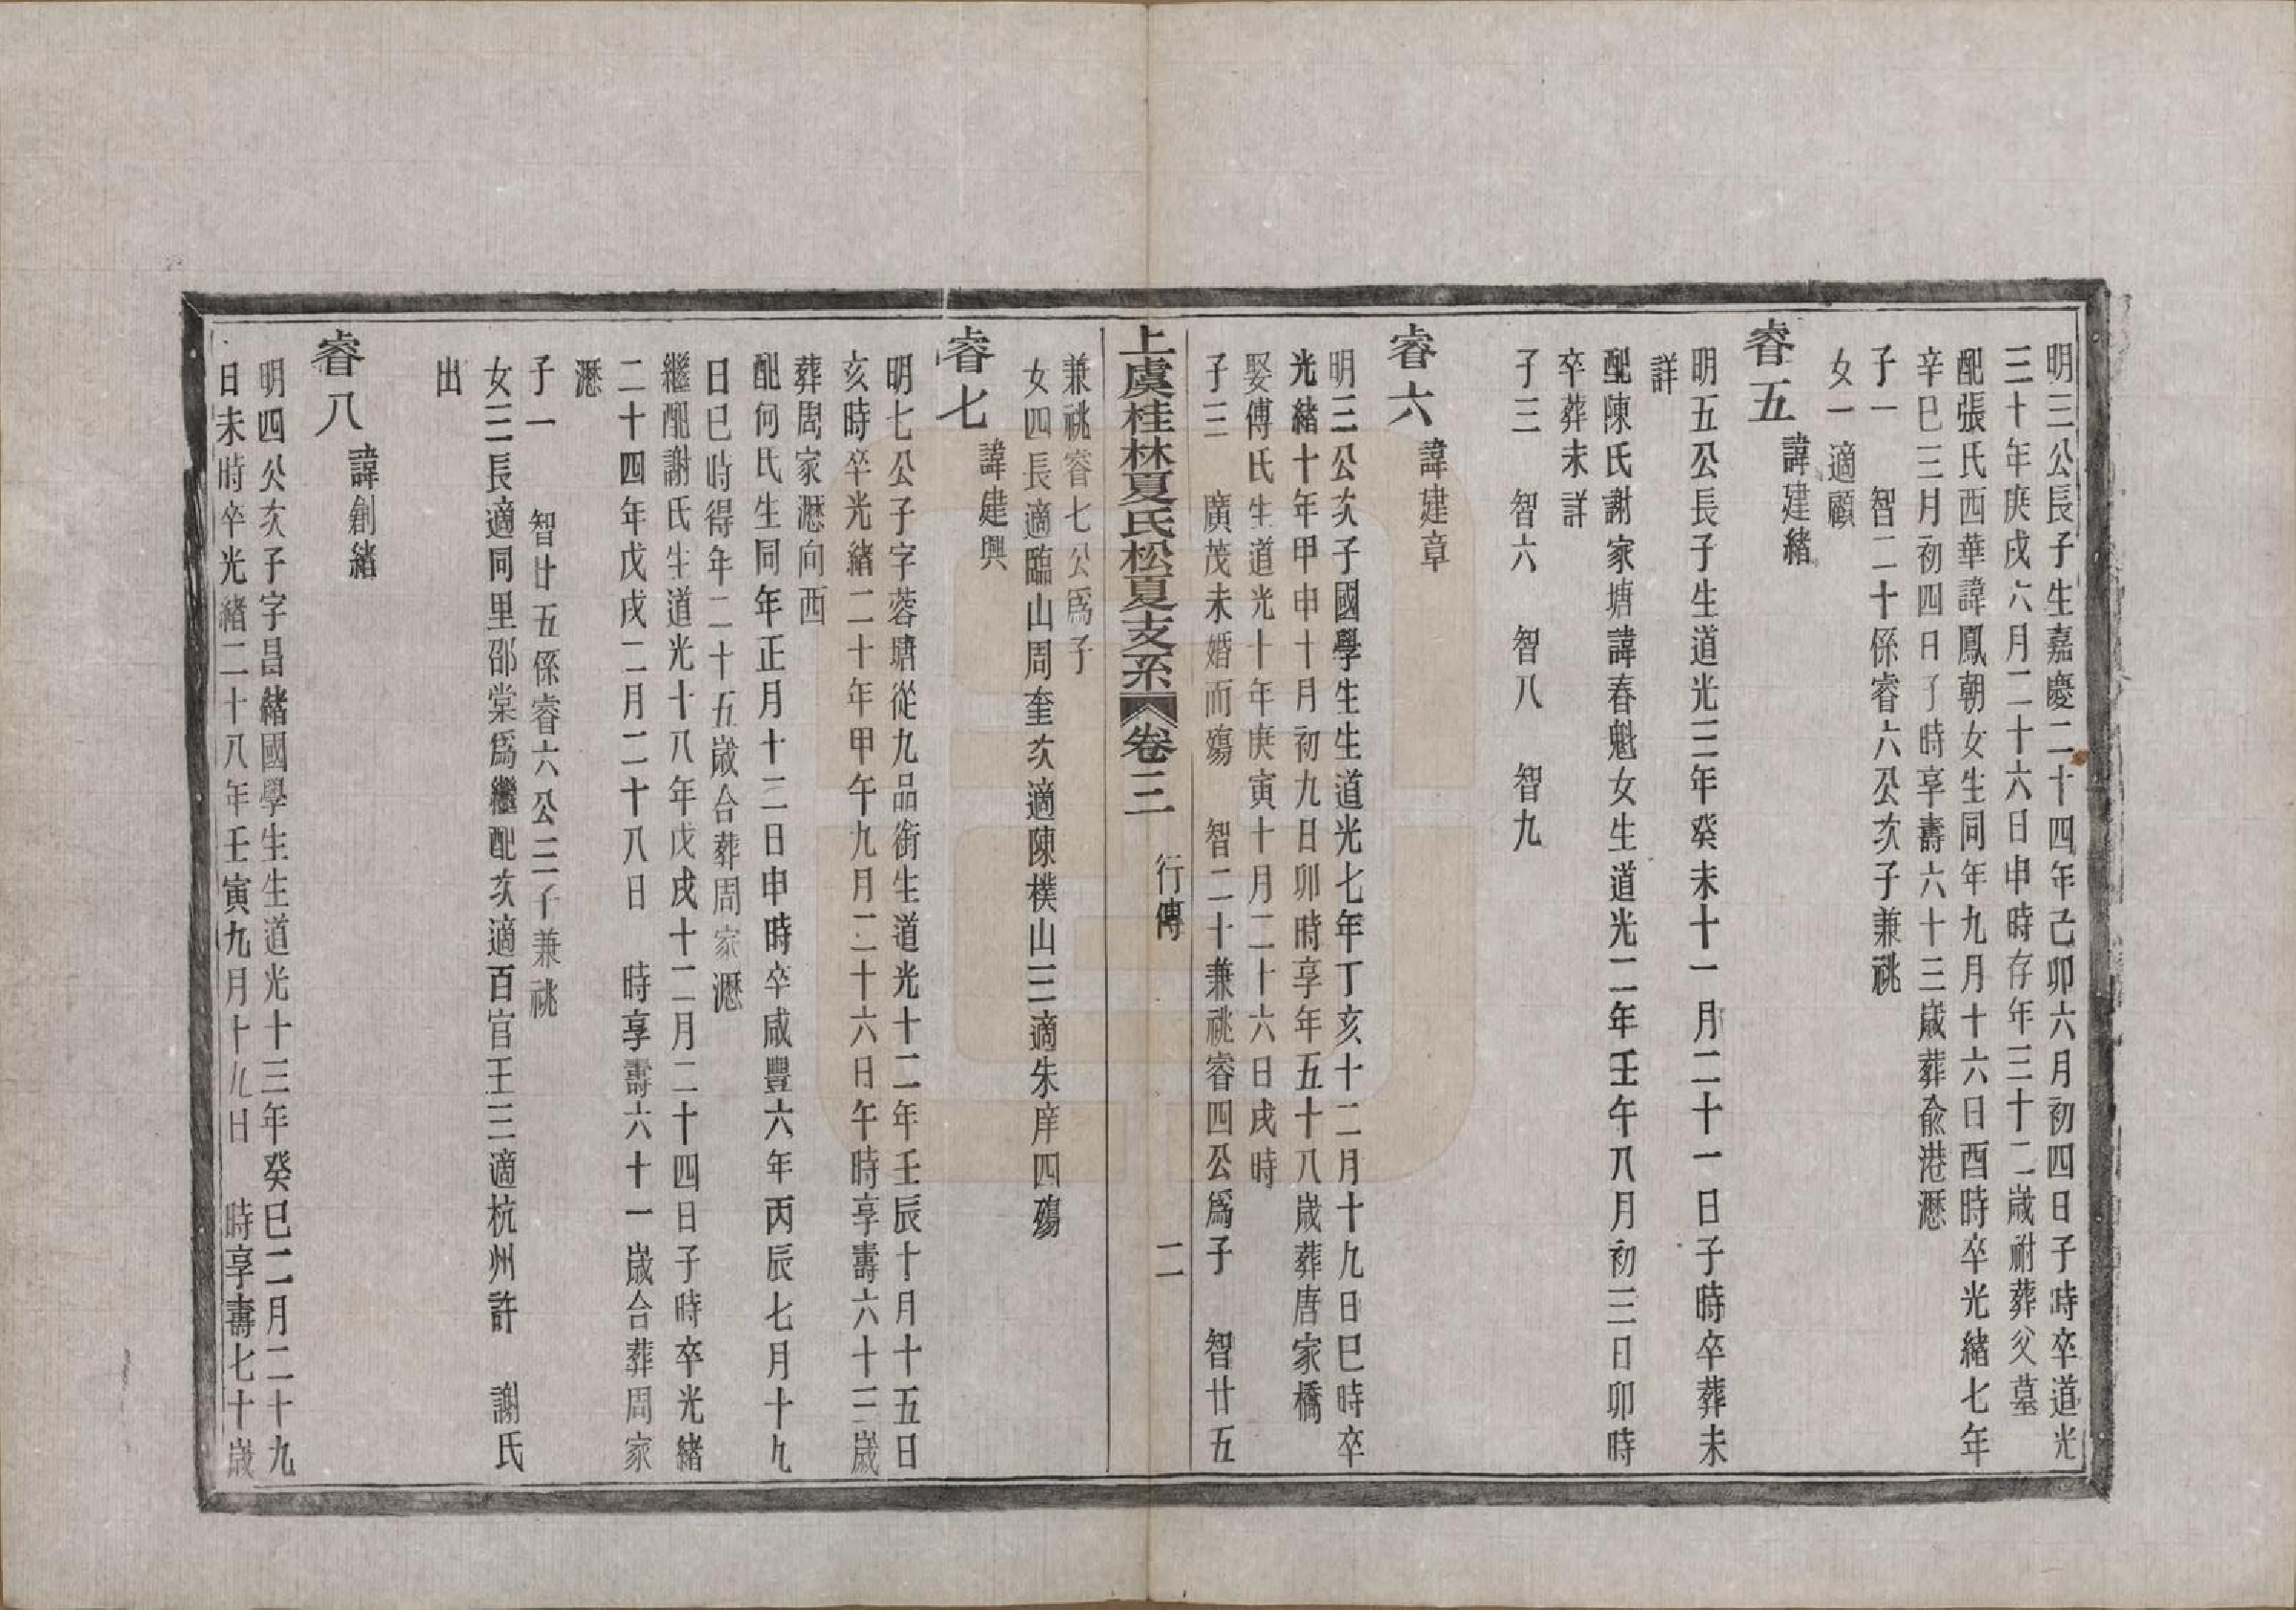 明三公長子生嘉慶二十四年己卯六月初四日子時卒道光
三十年庚戌六月二十六日申時存年三十二歲祔葬父墓
配張氏西華諱鳳朝女生同年九月十六日酉時卒光緒七年
辛巳三月初四日子時享壽六十三歲葬兪港瀝
子一　智二十係睿六公次子兼祧
女一適顧
睿五　諱建緒
明五公長子生道光三年癸未十一月二十一日子時卒葬未
詳
配陳氏謝家塘諱春魁女生道光二年壬午八月初三日卯時
卒葬未詳
子三　智六　智八　智九
睿六　諱建章
明三公次子國學生生道光七年丁亥十二月十九日巳時卒
光緒十年甲申十月初九日卯時享年五十八歲葬唐家橋
娶傅氏生道光十年庚寅十月二十六日戌時
子三　廣茂未婚而殤　智二十兼祧睿四公爲子　智廿五
上虞桂林夏氏松夏支系　卷三　行傳　二
兼祧睿七公爲子
女四長適臨山周奎次適陳樸山三適朱庠四殤
睿七　諱建興
明七公子字蓉塘從九品銜生道光十二年壬辰十月十五日
亥時卒光緒二十年甲午九月二十六日午時享壽六十三歲
葬周家瀝向西
配何氏生同年正月十三日申時卒咸豐六年丙辰七月十九
日巳時得年二十五歲合葬周家瀝
繼配謝氏生道光十八年戊戌十二月二十四日子時卒光緒
二十四年戊戌二月二十八日　時享壽六十一歲合葬周家
瀝
子一　智廿五係睿六公三子兼祧
女三長適同里邵棠爲繼配次適百官王三適杭州許　謝氏
出
睿八　諱創緒
明四公次子字昌緒國學生生道光十三年癸巳二月二十九
日未時卒光緒二十八年壬寅九月十九日　時享壽七十歲